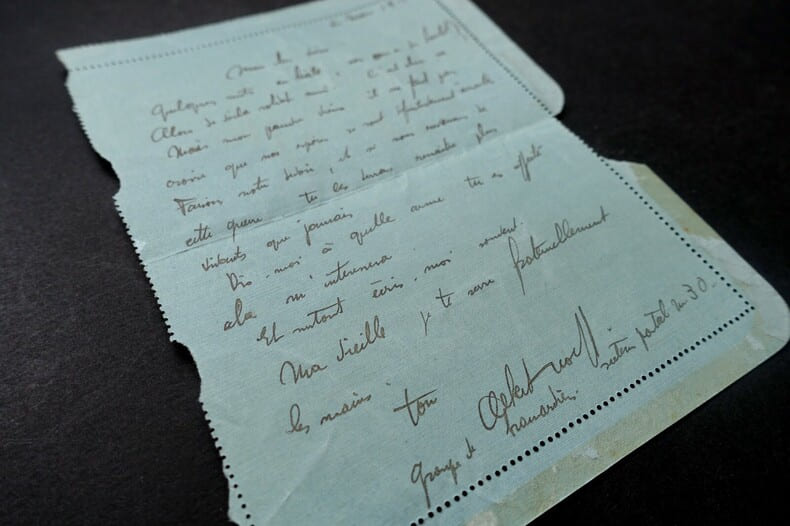 Quelques mots en hâte,
Alors te voilà soldat aussi. C'est
Mais mon pauvre vieux il ne faut pas
croire que nos espoirs se sont
Faisons notre devoir, et si nous revenons de
cette guerre tu les verras renaître plus
vivants que jamais
Dis-moi à quelle arme tu es affecté
cela m'intéressera
Et surtout écris-moi souvent.
Ma vieille je te serre fraternellement
les mains
ton
groupe de brancardiers. secteur postal No 30.